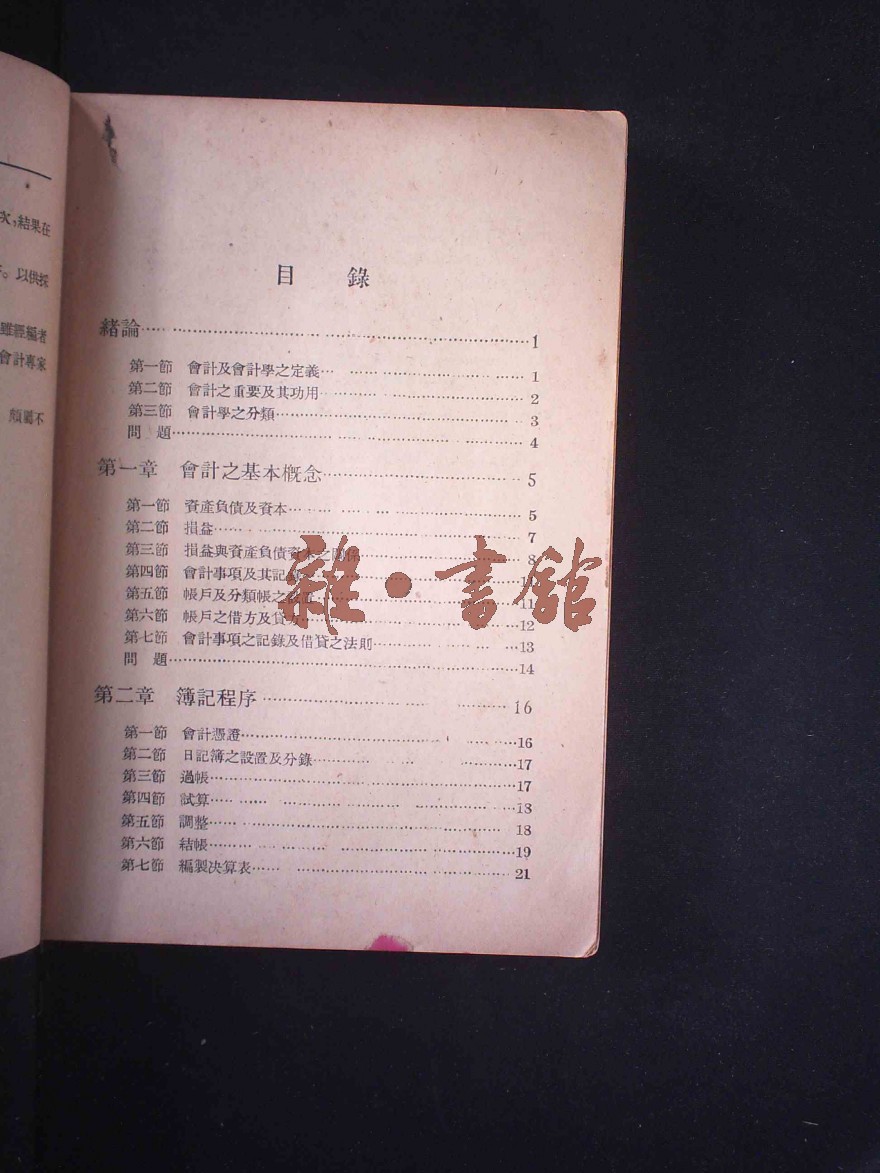 次,結果在
。以供採
雖經編者
會計專家
頗屬不
目 錄
緒論……1
第一節 會計及會計學之定義……1
第二節 會計之重要及其功用……2
第三節 會計學之分類……3
問 題……4
第一章 會計之基本概念……5
第一節 資產負債及資本……5
第二節 損益……7
第三節 損益與資產負債資本之關係……8
第四節 會計事項及其記錄……10
第五節 帳戶及分類帳之設置……11
第六節 帳戶之借方及貸方……12
第七節 會計事項之記錄及借貸之法則……13
問 題……14
第二章 簿記程序……16
第一節 會計憑證……16
第二節 日記簿之設置及分錄……17
第三節 過帳……17
第四節 試算……18
第五節 調整……18
第六節 結帳……19
第七節 編製決算表……21
雜·書館